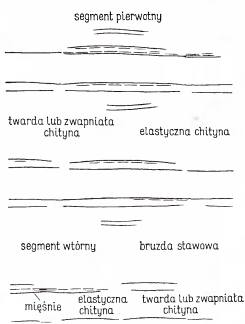 segment pierwotny
twarda lub zwapniata
chityna
elastyczna chityna
segment wtórny
bruzda stawowa
mięśnie
elastyczna
chityna
twarda lub zwapniata
chityna